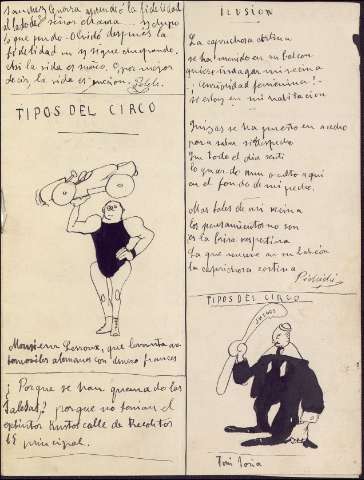 Sanchez Guerra aprendió la fidelidad
al lado del señor Maura.... y supo
que pudo. Olvidó después la
fidelidad
Asi la vida es
decir, la vida es
TIPOS DEL CIRCO
Monsieur Lerroux, que levanta au-
tomoviles alemanes con dinero frances
¿Porque se han quemado las
Salesas? porque no toman el
calle de Recoletos
15 principal.
ILUSION
La caprichosa cortina
se ha movido en su balcon
quiere indagar mi vecina
¡curiosidad femenina!
si estoy en mi habitación
Quizas se ha puesto en acecho
para saber si sospecho
que todo el dia senti
lo que de amor oculto aqui
en el fondo de mi pecho.
Mas tales de mi vecina
los pensamientos no son
es la brisa vespertina
La que mueve en su balcón
la caprichosa cortina
TIPOS DEL CIRCO
Toni